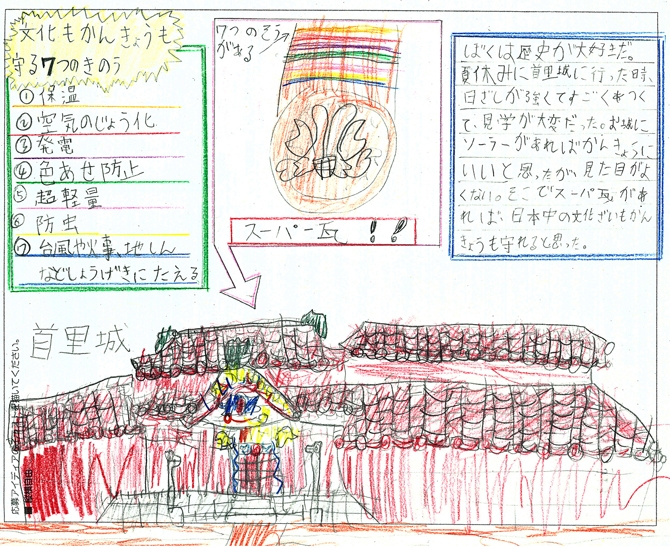 文化もかんきょうも
守る7つのきのう
①保温
②空気のじょう化
③発電
④色あせ防止
⑤超軽量
⑥防虫
⑦台風や火事、地しん
などしょうげきにたえる
7つのそう
がある
スーパー瓦!!
ぼくは歴史が大好きだ。
夏休みに首里城に行った時、
日ざしが強くてすごくあつく
て、見学が大変だった。お城に
ソーラーがあればかんきょうに
いいと思ったが、見た目がよ
くない。そこでスーパー瓦があ
れば、日本中の文化ざいもかん
きょうも守れると思った。
首里城
応募アイディア
描いてください。